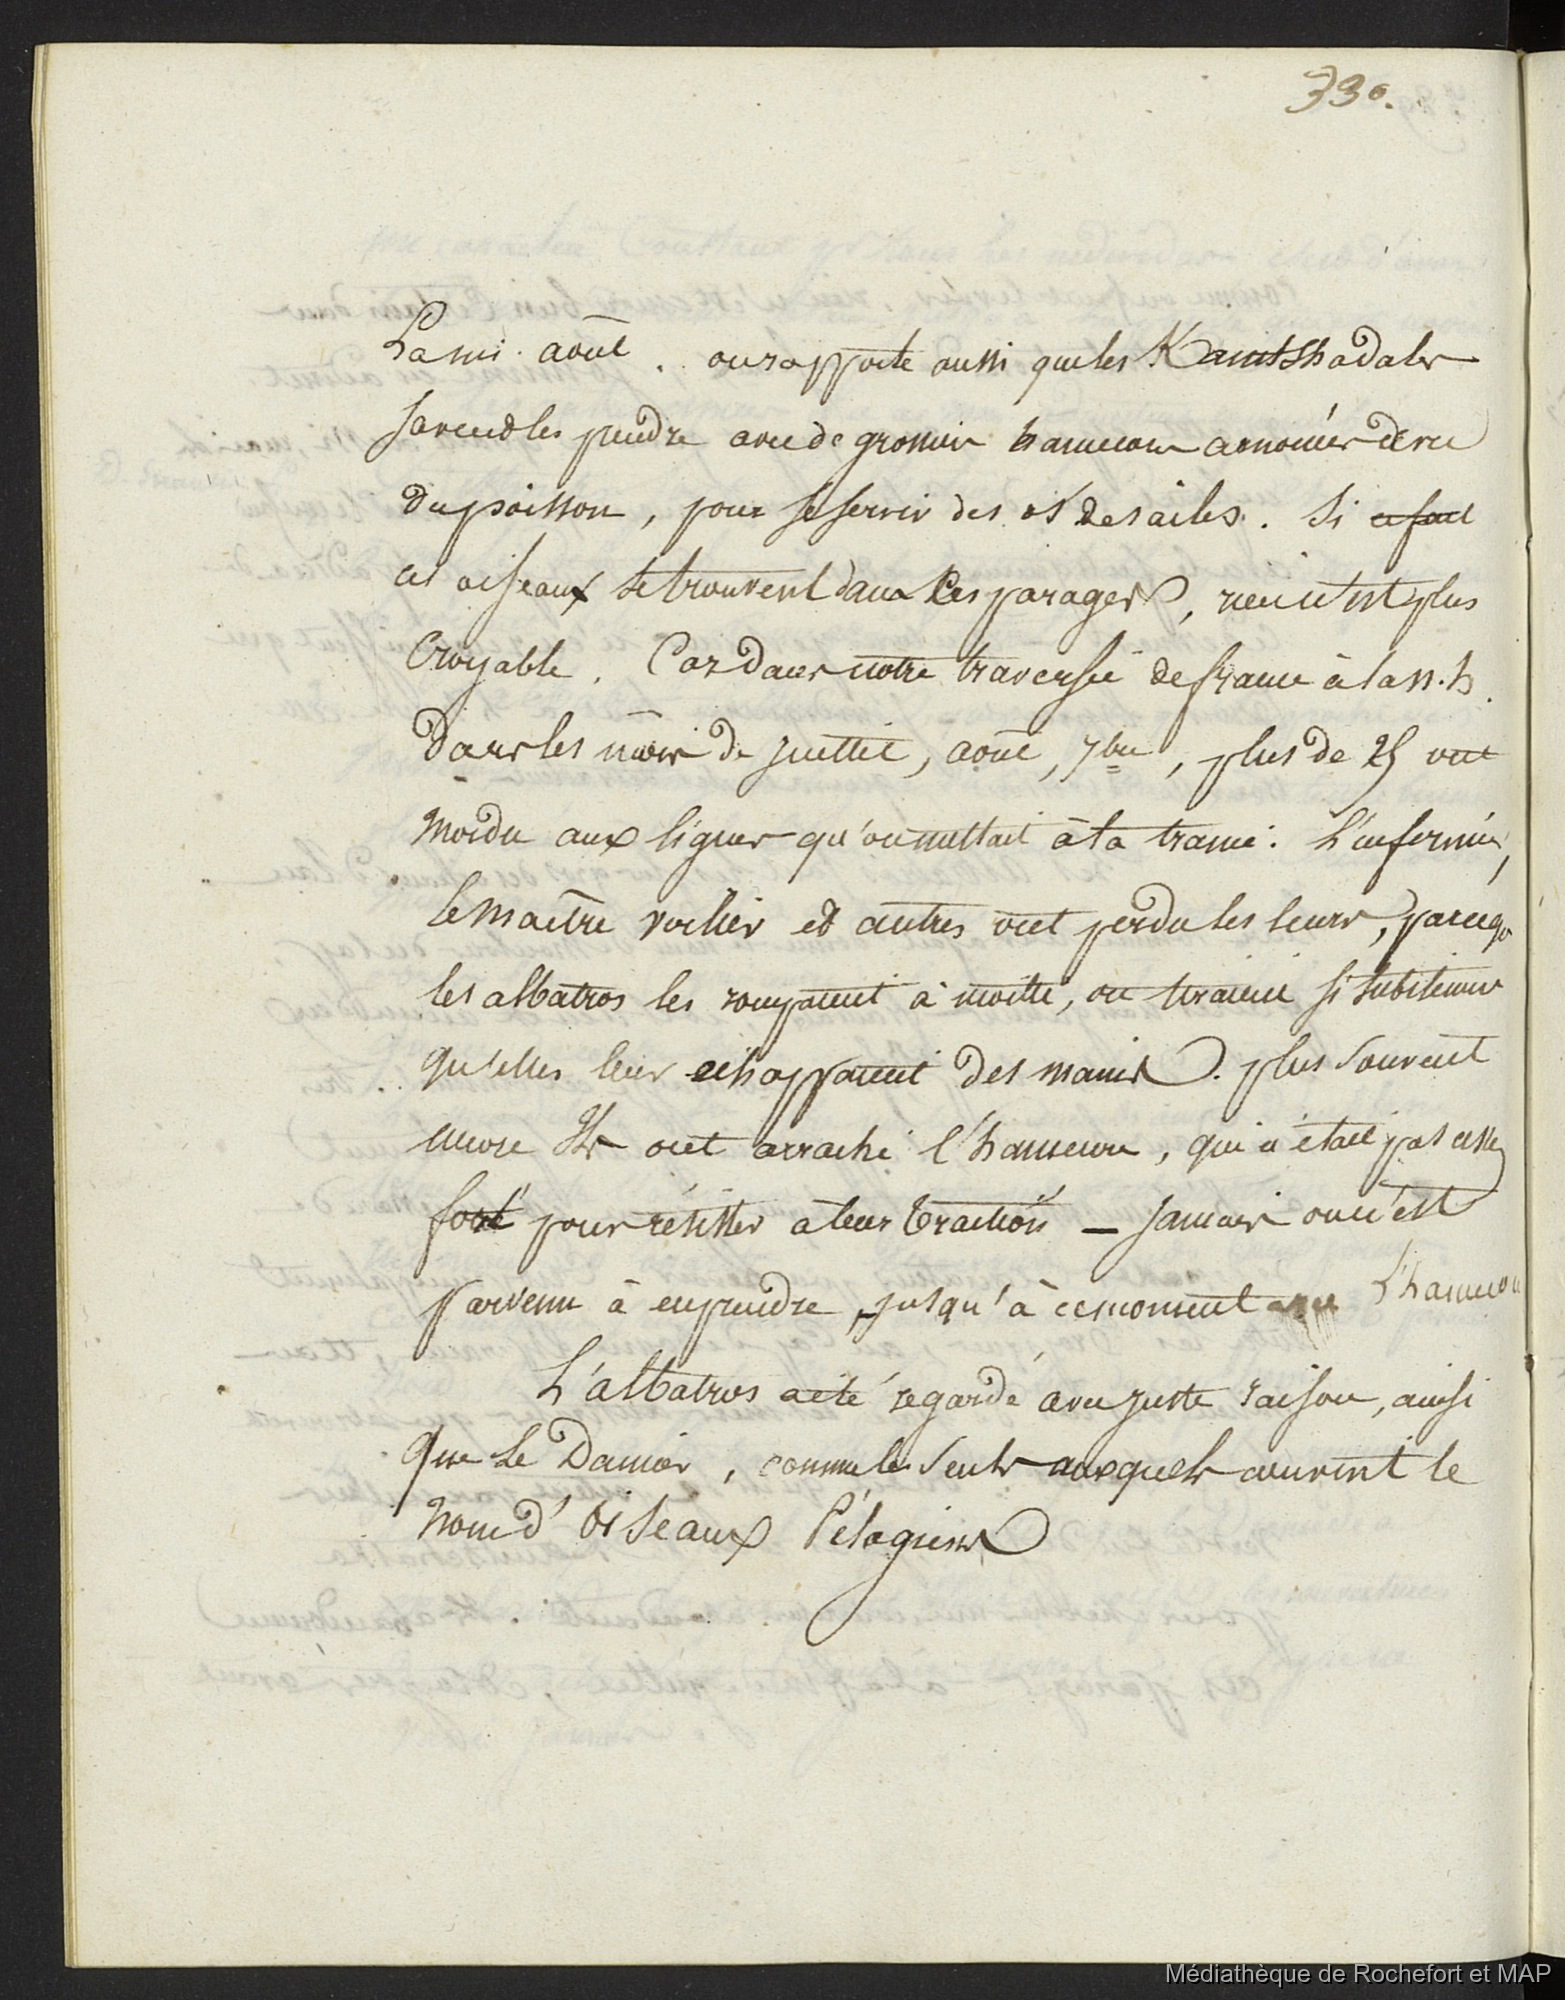 330.
La mi. août. on rapporte aussi que les Kamtshadales
savend les prendre avec de grossiers hameçons amorcés avec
du poisson, pour se servir des os des ailes. Si ce font
ces oiseaux se trouvent dans les parages, rien n'est plus
Croyable. Car dans notre traversée de france à la n. h.
Dans les mois de juillet, août, 7bre, plus de 25 ont
mordu aux lignes qu'on mettait à la traine. L'infirmier,
le maitre voilier et autres ont perdu les leurs, parceq
les albatros les rompaient à moitié, ou tiraient si subitement
qu'elles leur echappaient des mains. plus souvent
encore Ils ont arraché l'hameçon, qui n'était pas assez
fort pour résister à leur traction — Jamais on n'est
parvenu à en prendre, jusqu'à ce moment avec l'hameçon
L'albatros a été regardé avec juste raison, ainsi
que le Damier, comme les seuls auxquels convient le
nom d'Oiseaux Pélagiens
Médiathèque de Rochefort et MAP